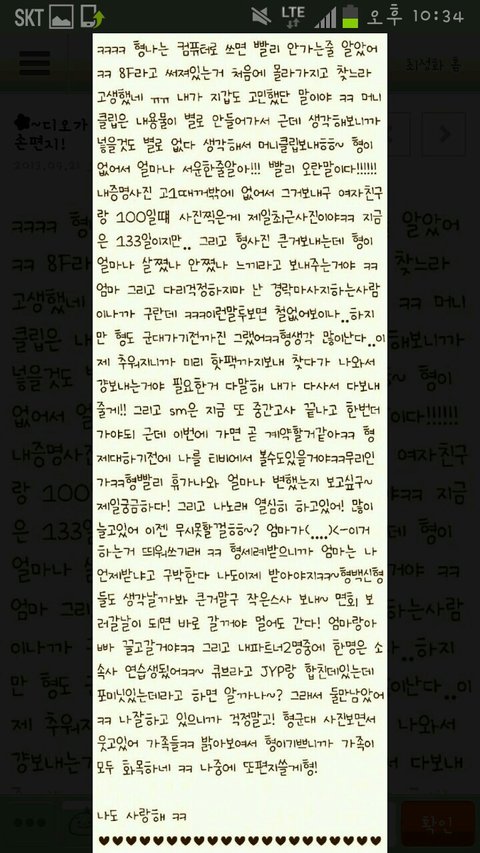 SKT LTE 오후 10:34
ㅋㅋㅋㅋ 형나는 컴퓨터로 쓰면 빨리 안가는줄 알았어
ㅋㅋ 8F라고 써져있는거 처음에 몰라가지고 찾느라
고생했네 ㅠㅠ 내가 지갑도 고민했단 말이야 ㅋㅋ 머니
클립은 내용물이 별로 안들어가서 근데 생각해보니까
넣을것도 별로 없다 생각해서 머니클립보내ㅎㅎ~ 형이
없어서 얼마나 서운한줄알아!!! 빨리 오란말이다!!!!!!
내증명사진 고1때꺼밖에 없어서 그거보내구 여자친구
랑 100일떄 사진찍은게 제일최근사진이야ㅋㅋ 지금
은 133일이지만.. 그리고 형사진 큰거보내는데 형이
얼마나 살쪘나 안쪘나 느끼라고 보내주는거야 ㅋㅋ
엄마 그리고 다리걱정하지마 난 경락마사지하는사람
이나까 구란데 ㅋㅋㅋ이런말두보면 철없어보이나..하지
만 형도 군대가기전까진 그랬어ㅋㅋ형생각 많이난다..이
제 추워지니까 미리 핫팩까지보내 찾다가 나와서
걍보내는거야 필요한거 다말해 내가 다사서 다보내
줄게!! 그리고 sm은 지금 또 중간고사 끝나고 한번더
가야되 근데 이번에 가면 곧 계약할거같아ㅋㅋ 형
제대하기전에 나를 티비에서 볼수도있을거야ㅋㅋ무리인
가ㅋㅋ형빨리 휴가나와 얼마나 변했는지 보고싶구~
제일궁금하다! 그리고 나노래 열심히 하고있어! 많이
늘고있어 이젠 무시못할껄ㅎㅎ~? 엄마가(....)<-이거
하는거 띄워쓰기래 ㅋㅋ 형세례받으니까 엄마는 나
언제받냐고 구박한다 나도이제 받아야지ㅋㅋ~형백신형
들도 생각날까봐 큰거말구 작은스사 보내~ 면회 보
러갈날이 되면 바로 갈꺼야 멀어도 간다! 엄마랑아
빠 끌고갈거야ㅋㅋ 그리고 내파트너2명중에 한명은 소
속사 연습생됬어ㅋㅋ~ 큐브라고 JYP랑 합친데있는데
포미닛있는데라고 하면 알까나~? 그래서 둘만남았어
ㅋㅋ 나잘하고 있으니까 걱정말고! 형군대 사진보면서
웃고있어 가족들ㅋㅋ 밝아보여서 형이기쁘니까 가족이
모두 화목하네 ㅋㅋ 나중에 또편지쓸게형!
나도 사랑해 ㅋㅋ
확인